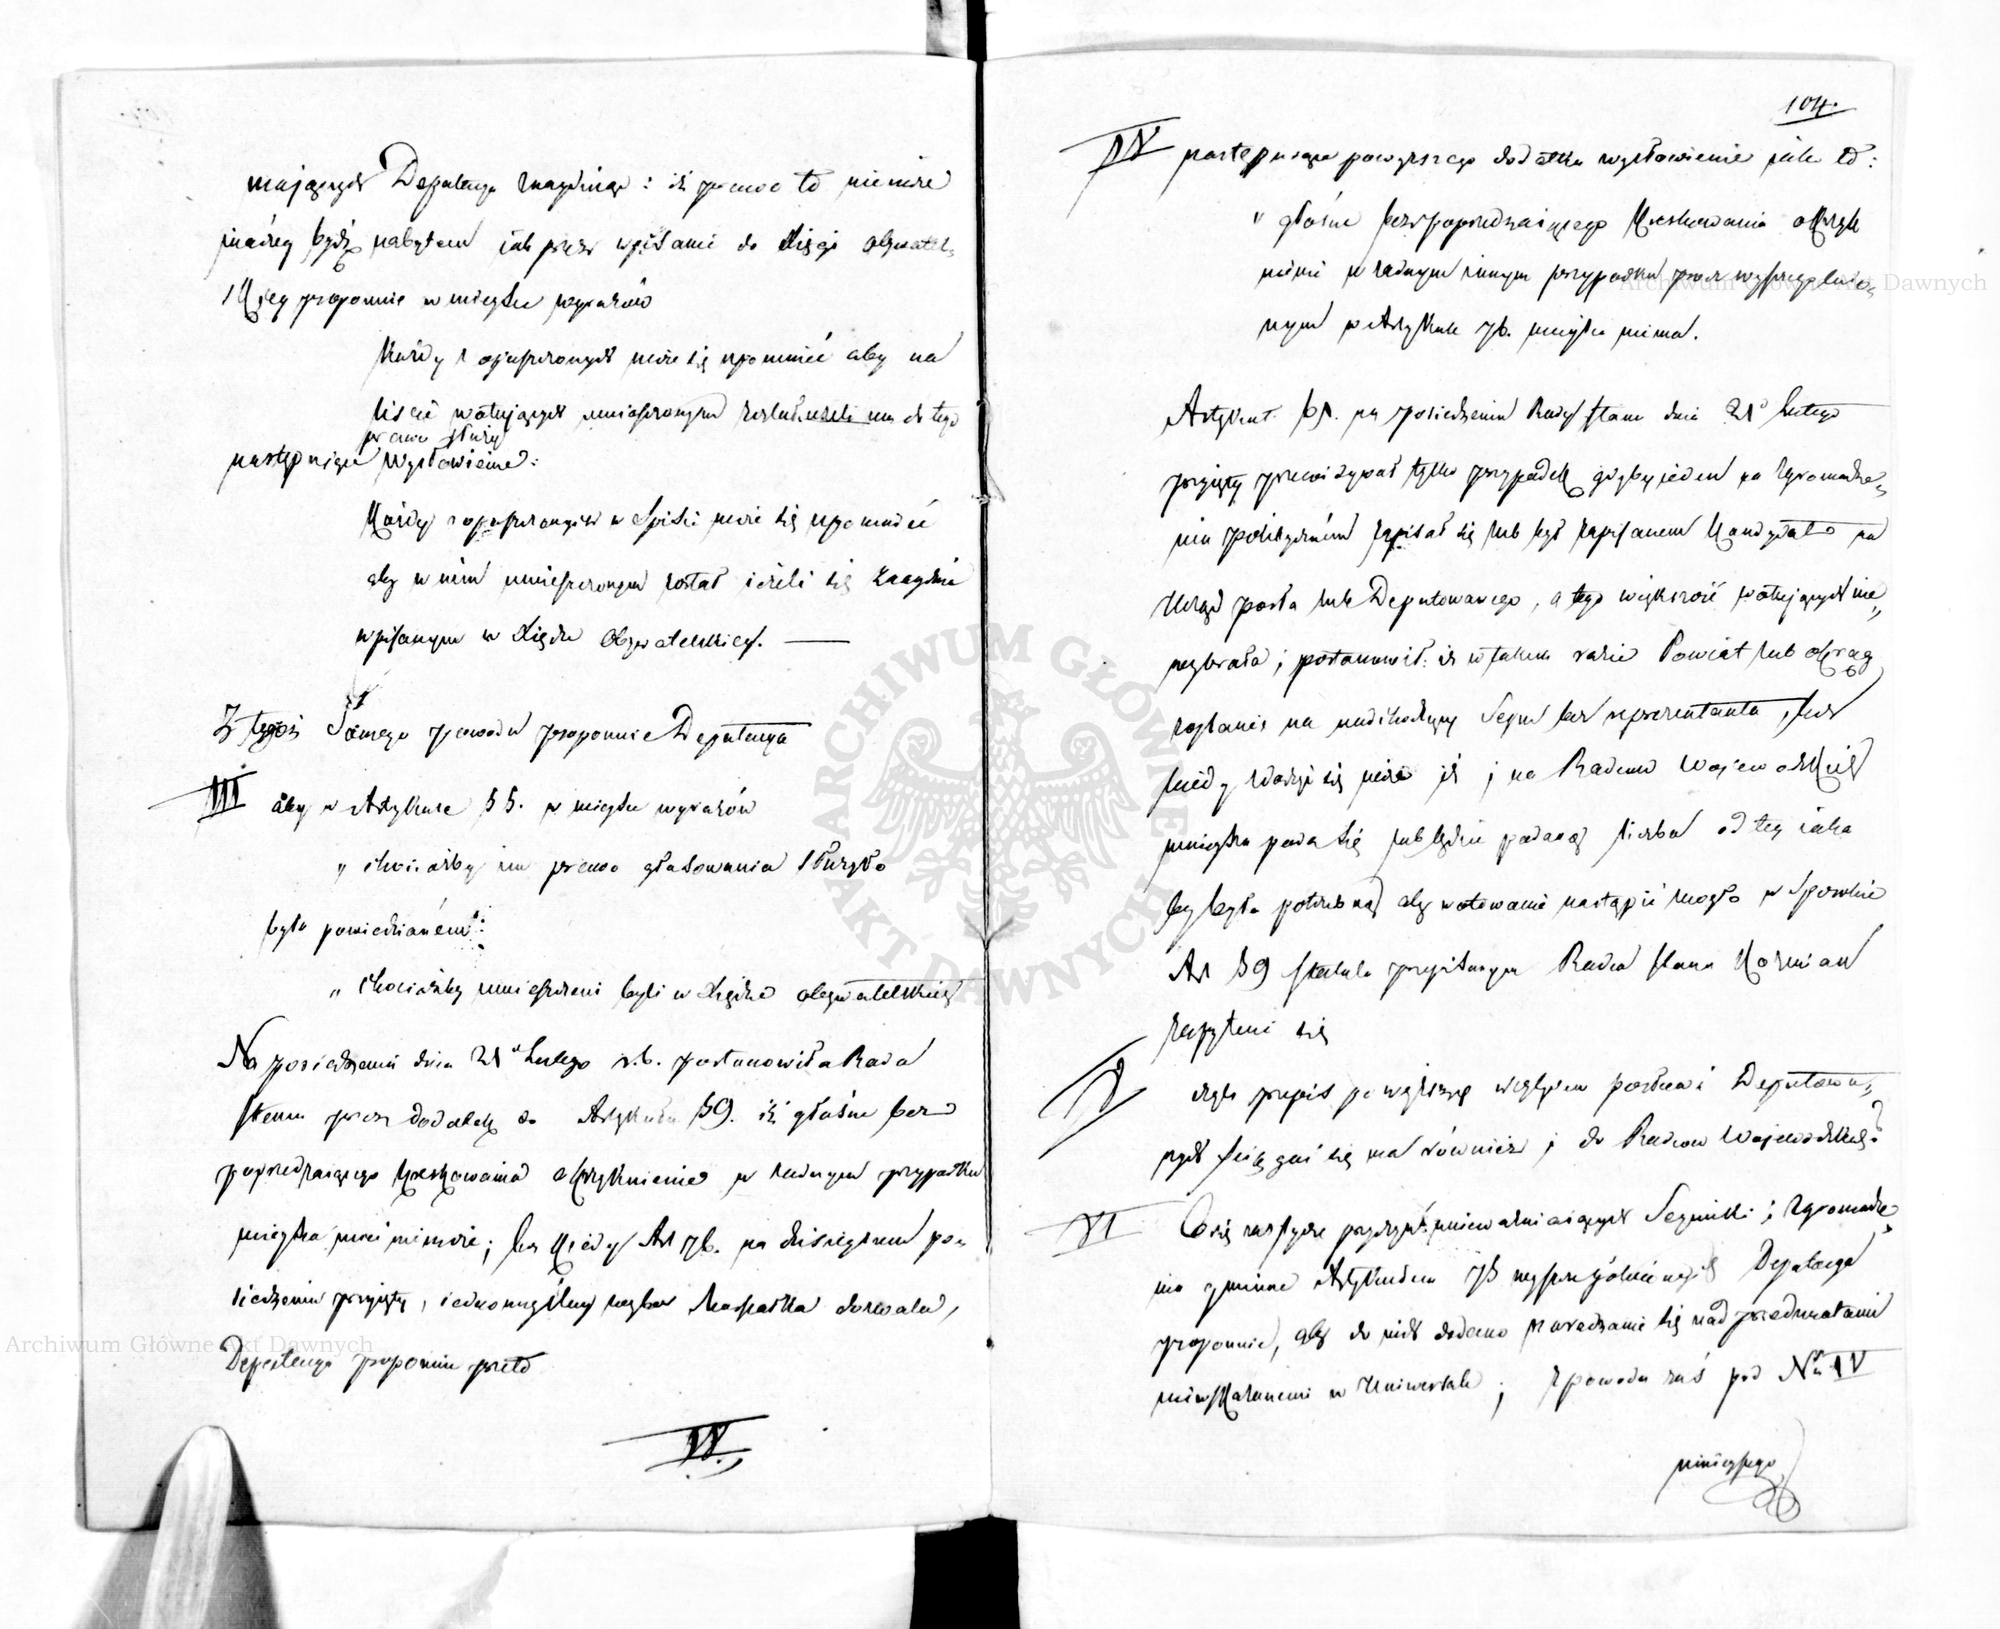 mających Deputacya znayduie: iż prawo to nie może
inaczey bydź nabytem iak przez wpisanie do Xięgi obywatel-
skiey proponuie w mieysce wyrazów
Każdy z opuszczonych może się upomnieć aby na
liście wotujących umieszczonym został ieżeli mu do tego
prawo służy
następuiące wysłowienie:
Każdy z opuszczonych w Spisie może się upomnieć
aby w nim umieszczonym został ieżeli się znayduie
wpisanym w Xiędze Obywatelskiey. —
Z tegoż samego powodu proponuie Deputacya
III aby w Artykule 55. w mieysce wyrazów
„ chociażby im prawo głosowania służyło
było powiedzianém:
„ chociażby umieszczeni byli w Xiędze obywatelskiey
Na posiedzeniu dnia 21° Lutego r. b. postanowiła Rada
Stanu przez dodatek do Artykułu 59. iż głośne bez
poprzedzaiącego kreskowania okrzyknienie w żadnym przypadku
mieysca mieć nie może; lecz kiedy Art 76. na dzisieyszem po-
siedzeniu przyięty, iednomyślny wybor Marszałka dozwala,
Deputacya proponuie przeto
IV.
104.
IV następuiące powyższego dodatku wysłowienie iako to:
„ głośne bez poprzedzaiącego Kreskowania okrzyk
nienie w żadnym innym przypadku prócz wyszczególnio-
nym w Artykule 76. mieysca niema.
Artykuł 61. na posiedzeniu Rady Stanu dnia 21° Lutego
przyięty przewidywał tylko przypadek gdyby ieden na zgromadze-
niu polityczném zapisał się lub był zapisanem Kandydat na
Urząd posła lub Deputowanego, a tego większość wotujących nie
wybrała; postanowił: iż w takim razie Powiat lub okrąg
zostanie na nadchodzący Seym bez reprezentanta, lecz
kiedy zdarzyć się może iż i na Radców Woiewódzkich
mnieysza poda się lub będzie podaną liczba od tey iaka
by była potrzebną aby wotowanie nastąpić mogło w sposobie
Art 59 statutu przepisanym Radca Stanu Kozmian
zapytuie się
V czyli przepis powyższy względem posłów i Deputowa-
nych ściągać się ma również i do Radców Woiewódzkich?
VI Co się zaś tycze przyczyn unieważniaiących Seymiki i Zgromadze-
nia gminne Artykułem 75 wyszczególnionych Deputacya
proponuie, aby do nich dodano naradzanie się nad przedmiotami
niewskazanemi w Uniwersale; z powodu zaś pod Nrm IV
ninieyszego